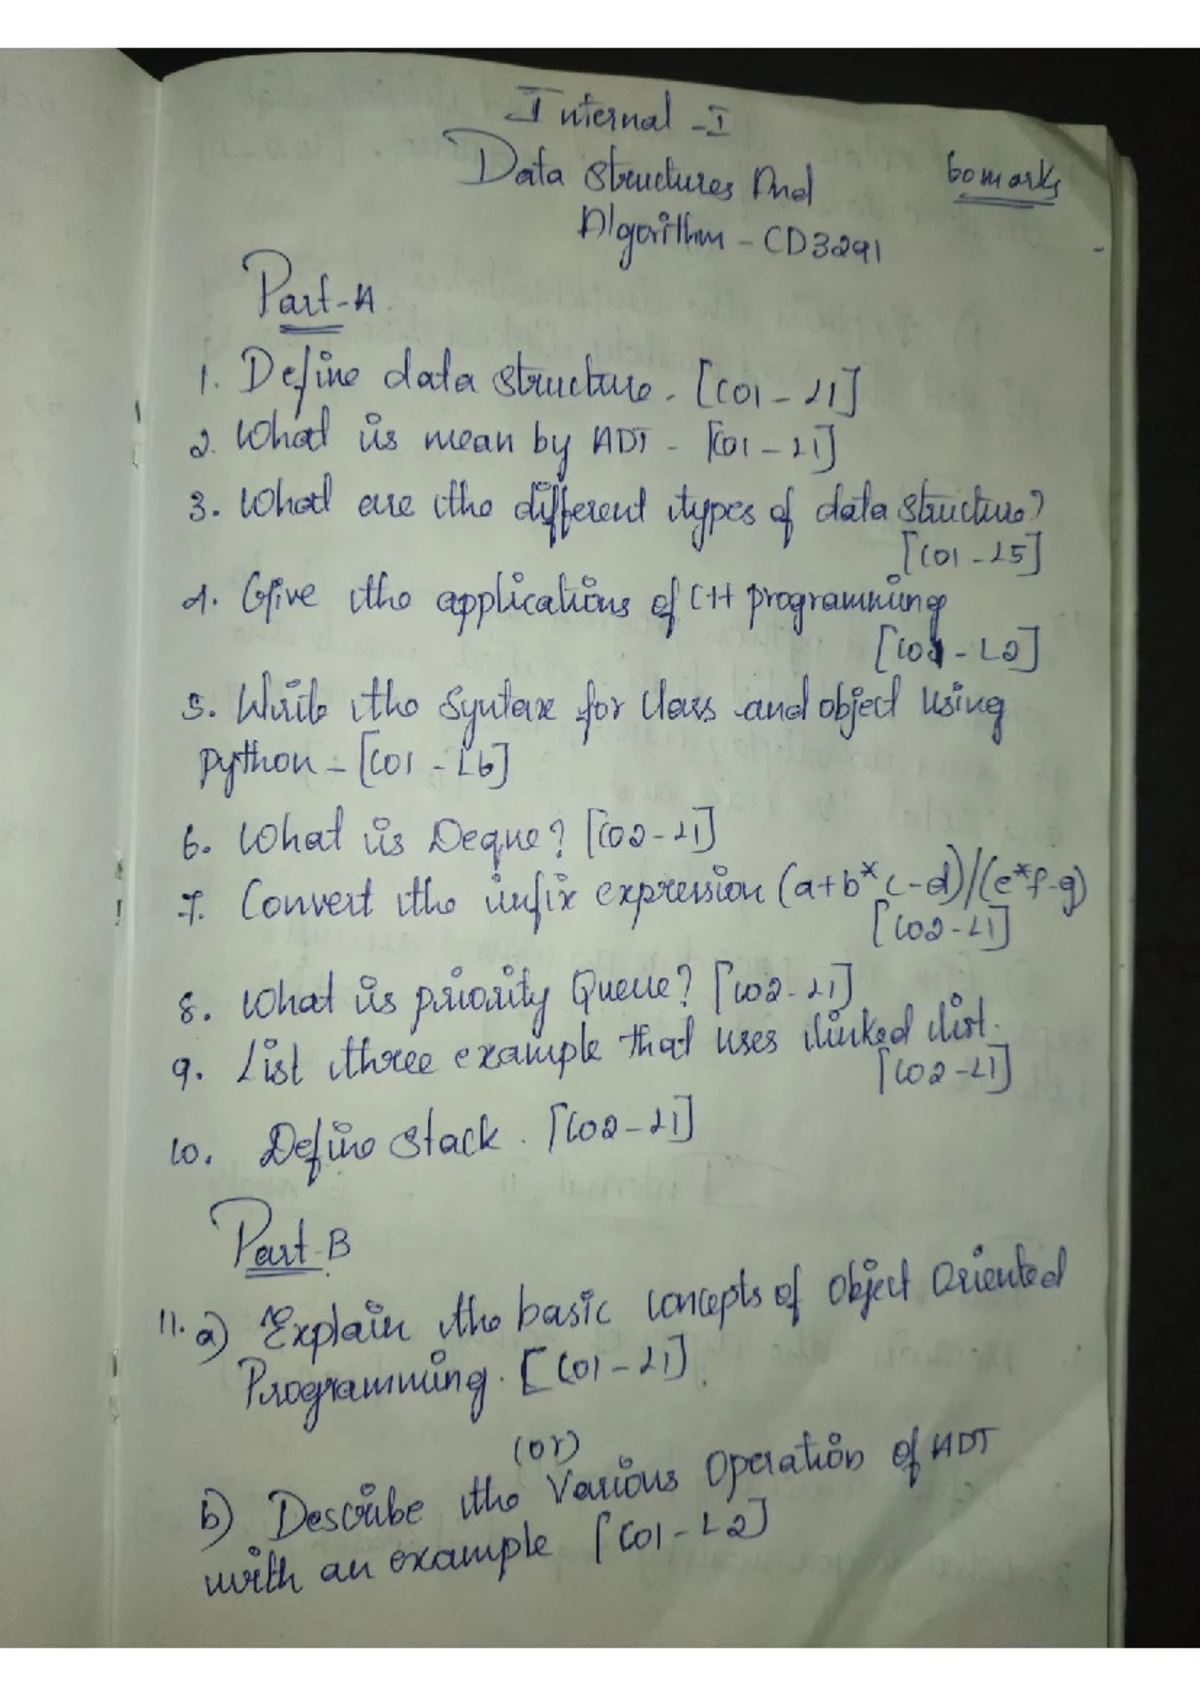 Internal - I
Data Structures And
60 marks
Algorithm - CD3291
Part-A
1. Define data structure. [CO1 - L1]
2. What is mean by ADT - [CO1 - L1]
3. What are the different types of data structure?
[CO1 - L5]
4. Give the applications of C++ programming
[CO1 - L2]
5. Write the Syntax for class and object using
python - [CO1 - L6]
6. What is Deque? [CO2 - L1]
7. Convert the infix expression (a+b*c-d)/(e*f-g)
[CO2 - L1]
8. What is priority Queue? [CO2 - L1]
9. List three example that uses linked list.
[CO2 - L1]
10. Define Stack. [CO2 - L1]
Part-B
11. a) Explain the basic concepts of Object Oriented
Programming. [CO1 - L1]
(or)
b) Describe the Various Operation of ADT
with an example [CO1 - L2]